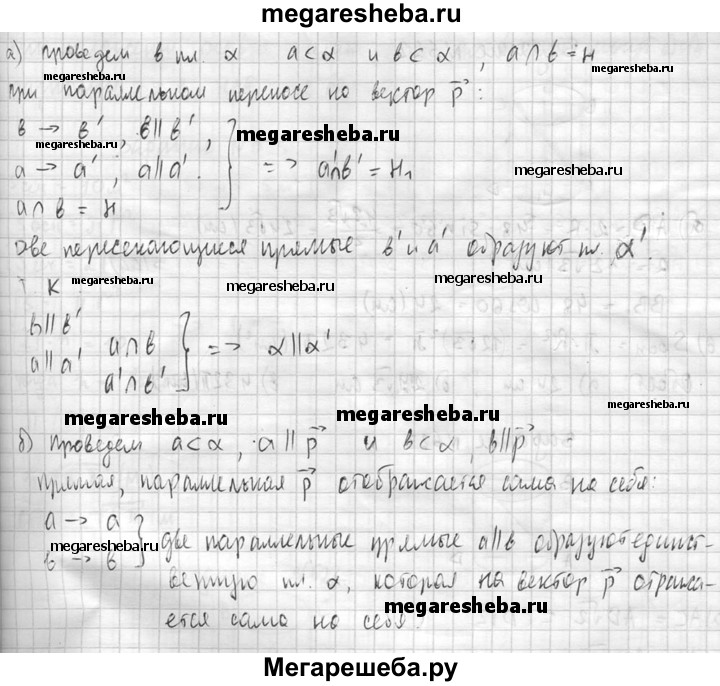 megaresheba.ru
а) проведем в пл. α a⊂α и b⊂α, a∩b=H
megaresheba.ru megaresheba.ru
при параллельном переносе на вектор p⃗:
b → b', b∥b', megaresheba.ru
megaresheba.ru megaresheba.ru
a → a', a∥a'. } => a'∩b' = H₁
a∩b = H
две пересекающиеся прямые b' и a' образуют пл. α'.
т. к. megaresheba.ru megaresheba.ru megaresheba.ru
b∥b'
a∥a' a∩b } => α∥α'
a'∩b'
megaresheba.ru megaresheba.ru megaresheba.ru
б) Проведем a⊂α, a∥p⃗ и b⊂α, b∥p⃗
Прямая, параллельная p⃗ отображается сама на себя:
a → a
megaresheba.ru
b → b } две параллельные прямые a∥b образуют единст-
венную пл. α, которая на вектор p⃗ отража-
megaresheba.ru
ется сама на себя.
Мегарешеба.ру